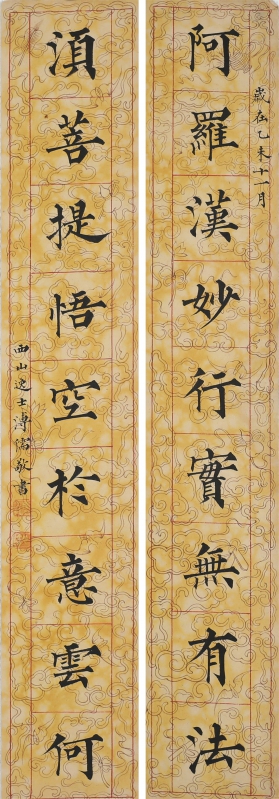 歲在乙未十一月
阿羅漢妙行實無有法
須菩提悟空於意雲何
西山逸士溥儒敬書